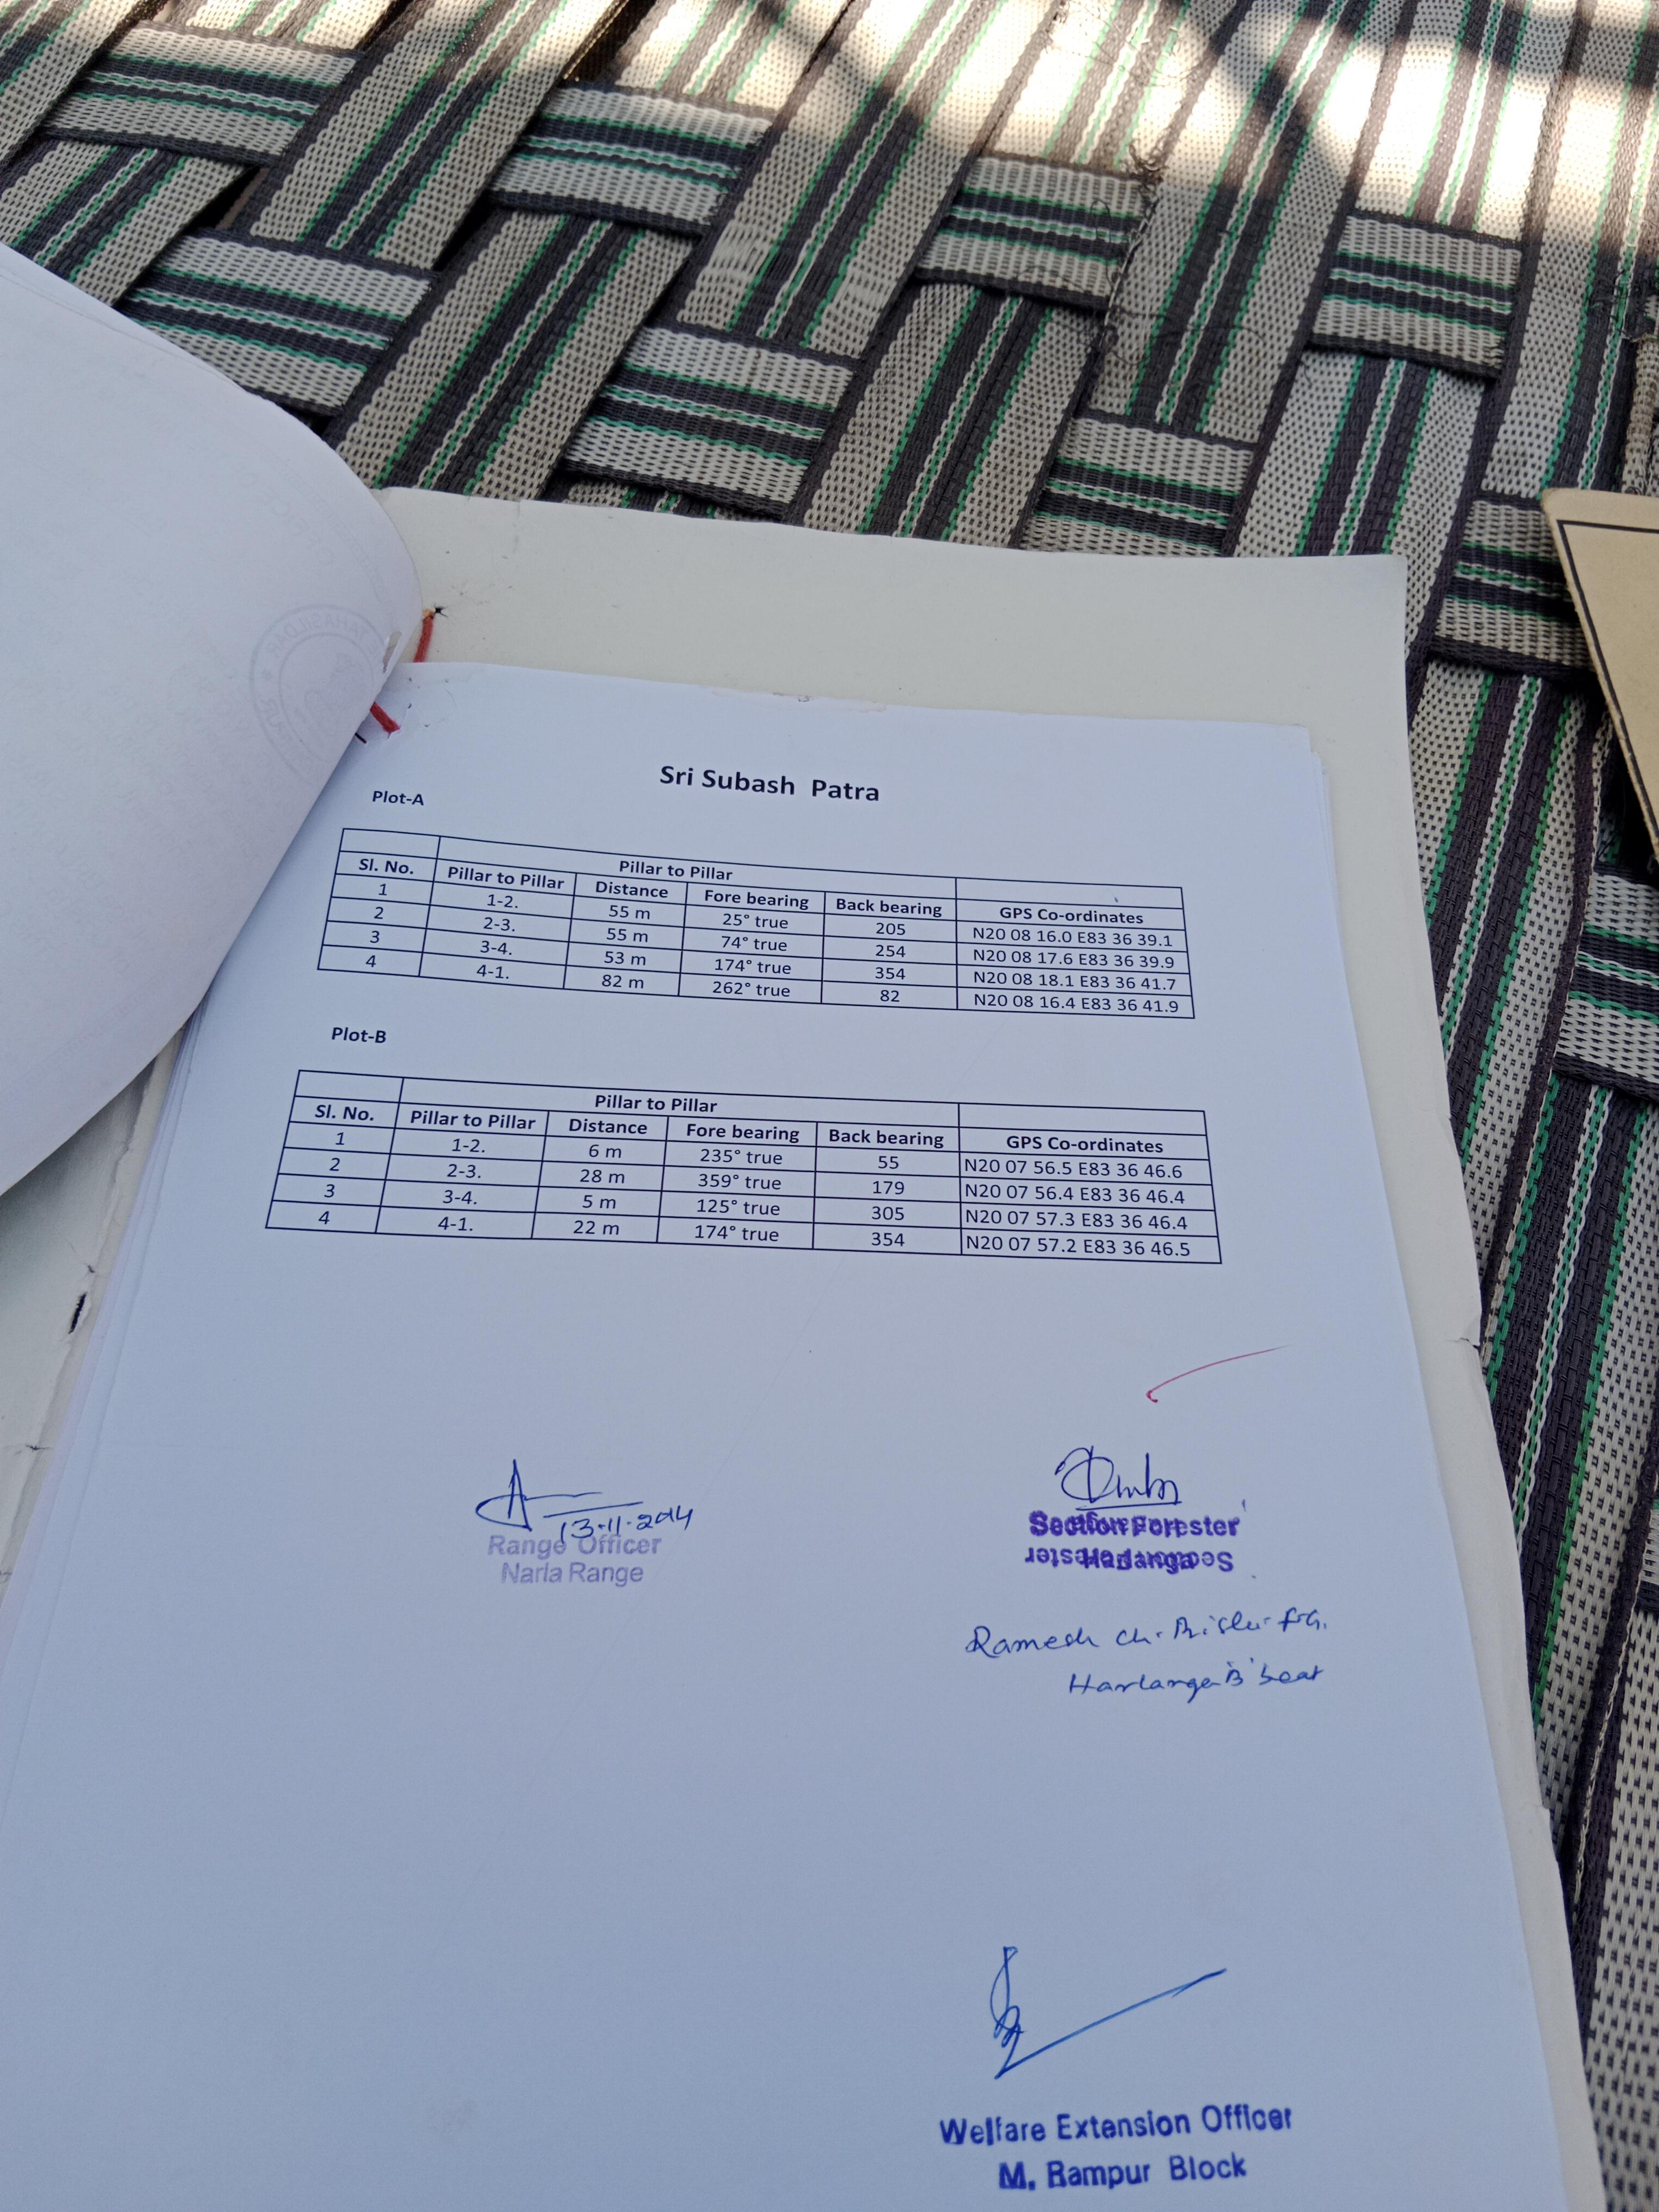 Sri Subash Patra
Plot-A
Pillar to Pillar
Sl. No. Pillar to Pillar Distance Fore bearing Back bearing GPS Co-ordinates
1 1-2. 55 m 25° true 205 N20 08 16.0 E83 36 39.1
2 2-3. 55 m 74° true 254 N20 08 17.6 E83 36 39.9
3 3-4. 53 m 174° true 354 N20 08 18.1 E83 36 41.7
4 4-1. 82 m 262° true 82 N20 08 16.4 E83 36 41.9
Plot-B
Pillar to Pillar
Sl. No. Pillar to Pillar Distance Fore bearing Back bearing GPS Co-ordinates
1 1-2. 6 m 235° true 55 N20 07 56.5 E83 36 46.6
2 2-3. 28 m 359° true 179 N20 07 56.4 E83 36 46.4
3 3-4. 5 m 125° true 305 N20 07 57.3 E83 36 46.4
4 4-1. 22 m 174° true 354 N20 07 57.2 E83 36 46.5
13-11-2014
Range Officer
Narla Range
Section Forester
Ramesh ch.
beat
Welfare Extension Officer
M. Rampur Block